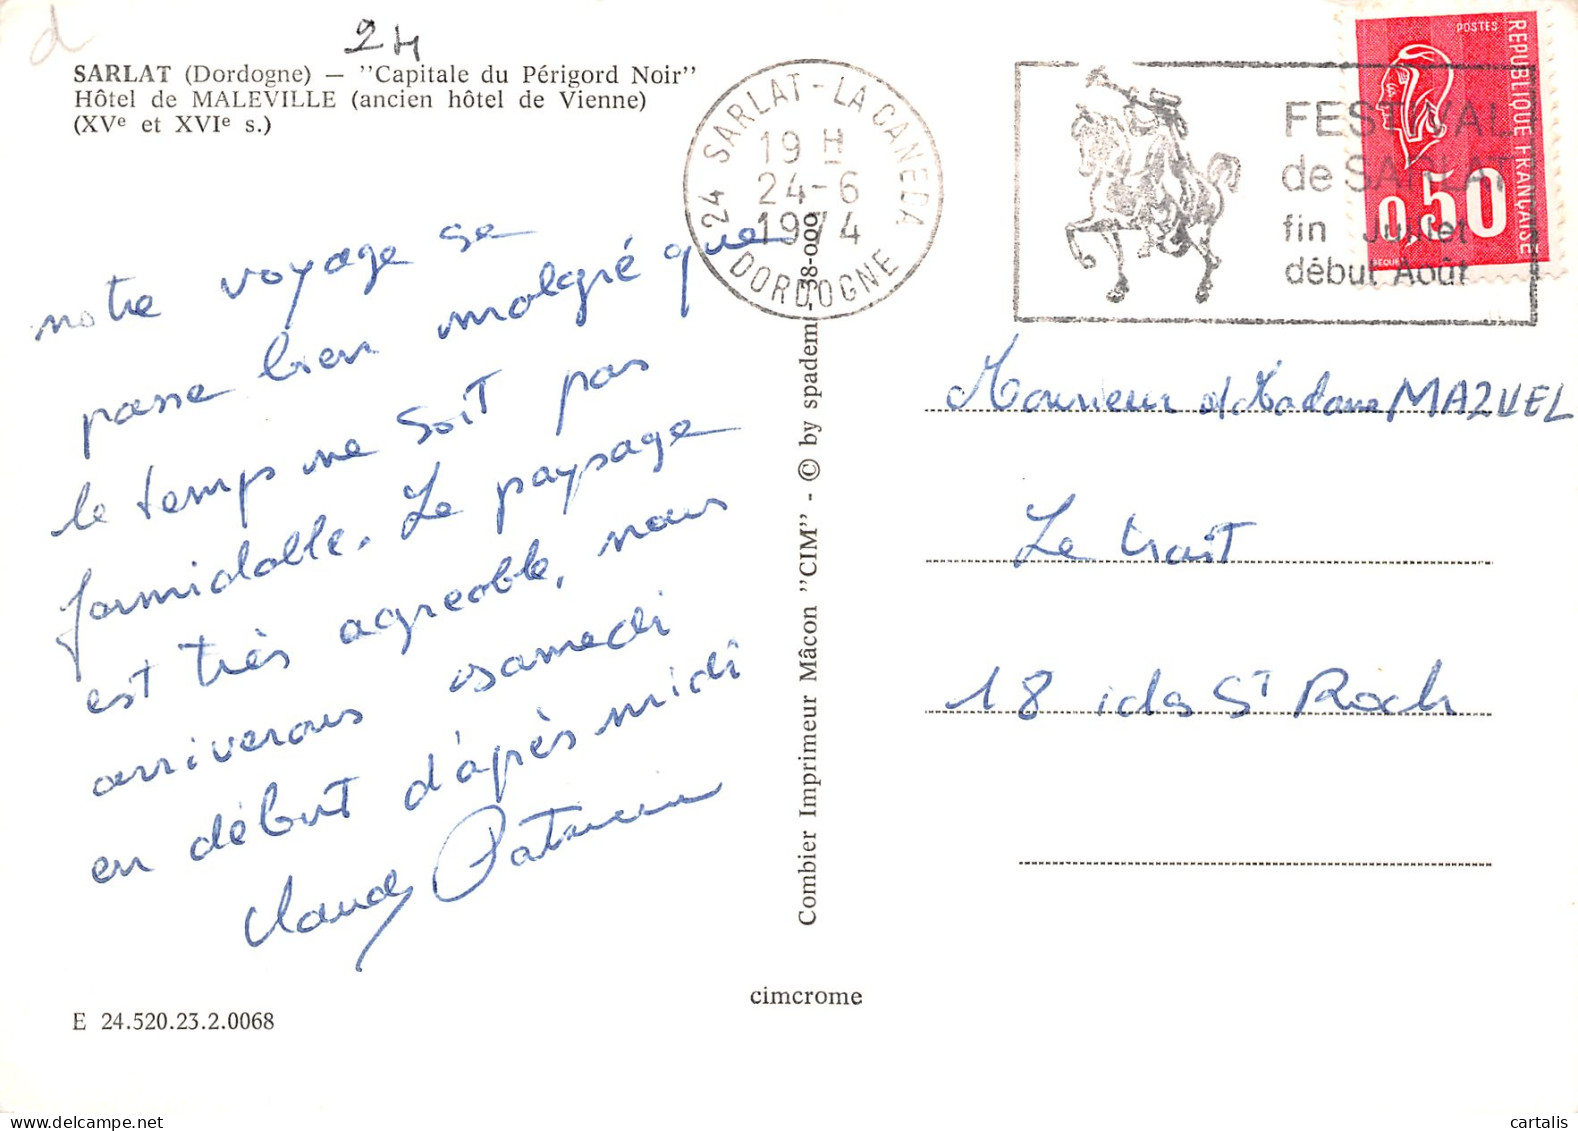 d
24
SARLAT (Dordogne) — "Capitale du Périgord Noir"
Hôtel de MALEVILLE (ancien hôtel de Vienne)
(XVe et XVIe s.)
24 SARLAT-LA CANEDA
19 H
24-6
1974
DORDOGNE
FESTIVAL
de SARLAT
fin Juillet
début Août
POSTES
REPUBLIQUE FRANÇAISE
0,50
notre voyage se
passe bien malgré que
le temps ne soit pas
formidable. Le paysage
est très agreable, nous
arriverons samedi
en début d'après midi
Claude
Combier Imprimeur Mâcon "CIM" - © by spadem -58-009
Monsieur et Madame MAZUEL
Le trait
18 St Roch
cimcrome
E 24.520.23.2.0068
cartalis